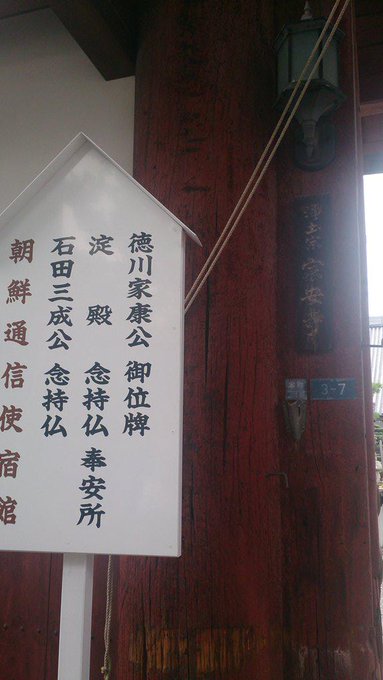 徳川家康公 御位牌
淀殿 念持仏 奉安所
石田三成公 念持仏
朝鮮通信使宿館
浄土宗 宗安寺
3-7